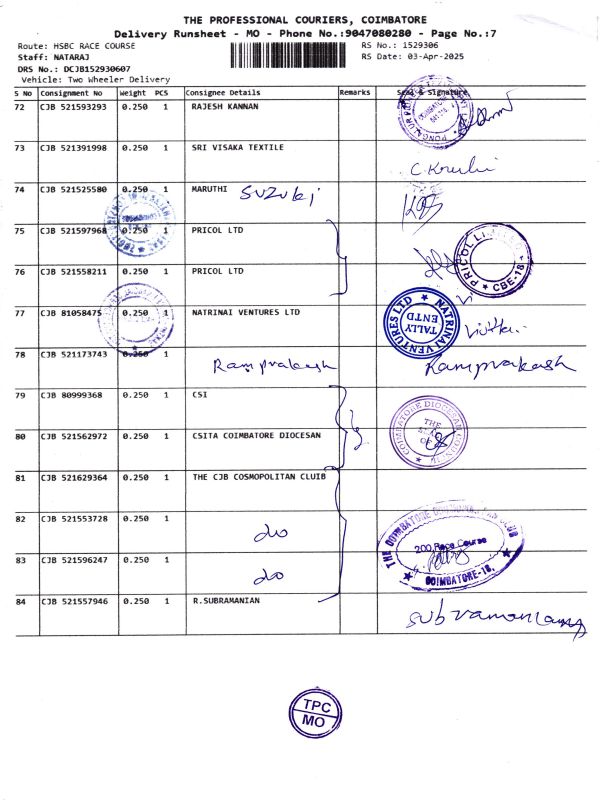 THE PROFESSIONAL COURIERS, COIMBATORE
Delivery Runsheet - MO - Phone No.:9047080280 - Page No.:7
Route: HSBC RACE COURSE RS No.: 1529306
Staff: NATARAJ RS Date: 03-Apr-2025
DRS No.: DCJB152930607
Vehicle: Two Wheeler Delivery
S No Consignment No Weight PCS Consignee Details Remarks Seal & Signature
72 CJB 521593293 0.250 1 RAJESH KANNAN
73 CJB 521391998 0.250 1 SRI VISAKA TEXTILE
74 CJB 521525580 0.250 1 MARUTHI Suzuki
75 CJB 521597968 0.250 1 PRICOL LTD
PRICOL LIMITED CBE-18
76 CJB 521558211 0.250 1 PRICOL LTD
77 CJB 81058475 0.250 1 NATRINAI VENTURES LTD
NATRINAI VENTURES LTD TALLY ENTD
78 CJB 521173743 0.250 1 Ramprakash Ramprakash
79 CJB 80999368 0.250 1 CSI
COIMBATORE DIOCESAN THE
80 CJB 521562972 0.250 1 CSITA COIMBATORE DIOCESAN
81 CJB 521629364 0.250 1 THE CJB COSMOPOLITAN CLUIB
82 CJB 521553728 0.250 1 do
THE COIMBATORE COSMOPOLITAN CLUB
200,Race Course
COIMBATORE-18.
83 CJB 521596247 0.250 1 do
84 CJB 521557946 0.250 1 R.SUBRAMANIAN
TPC
MO